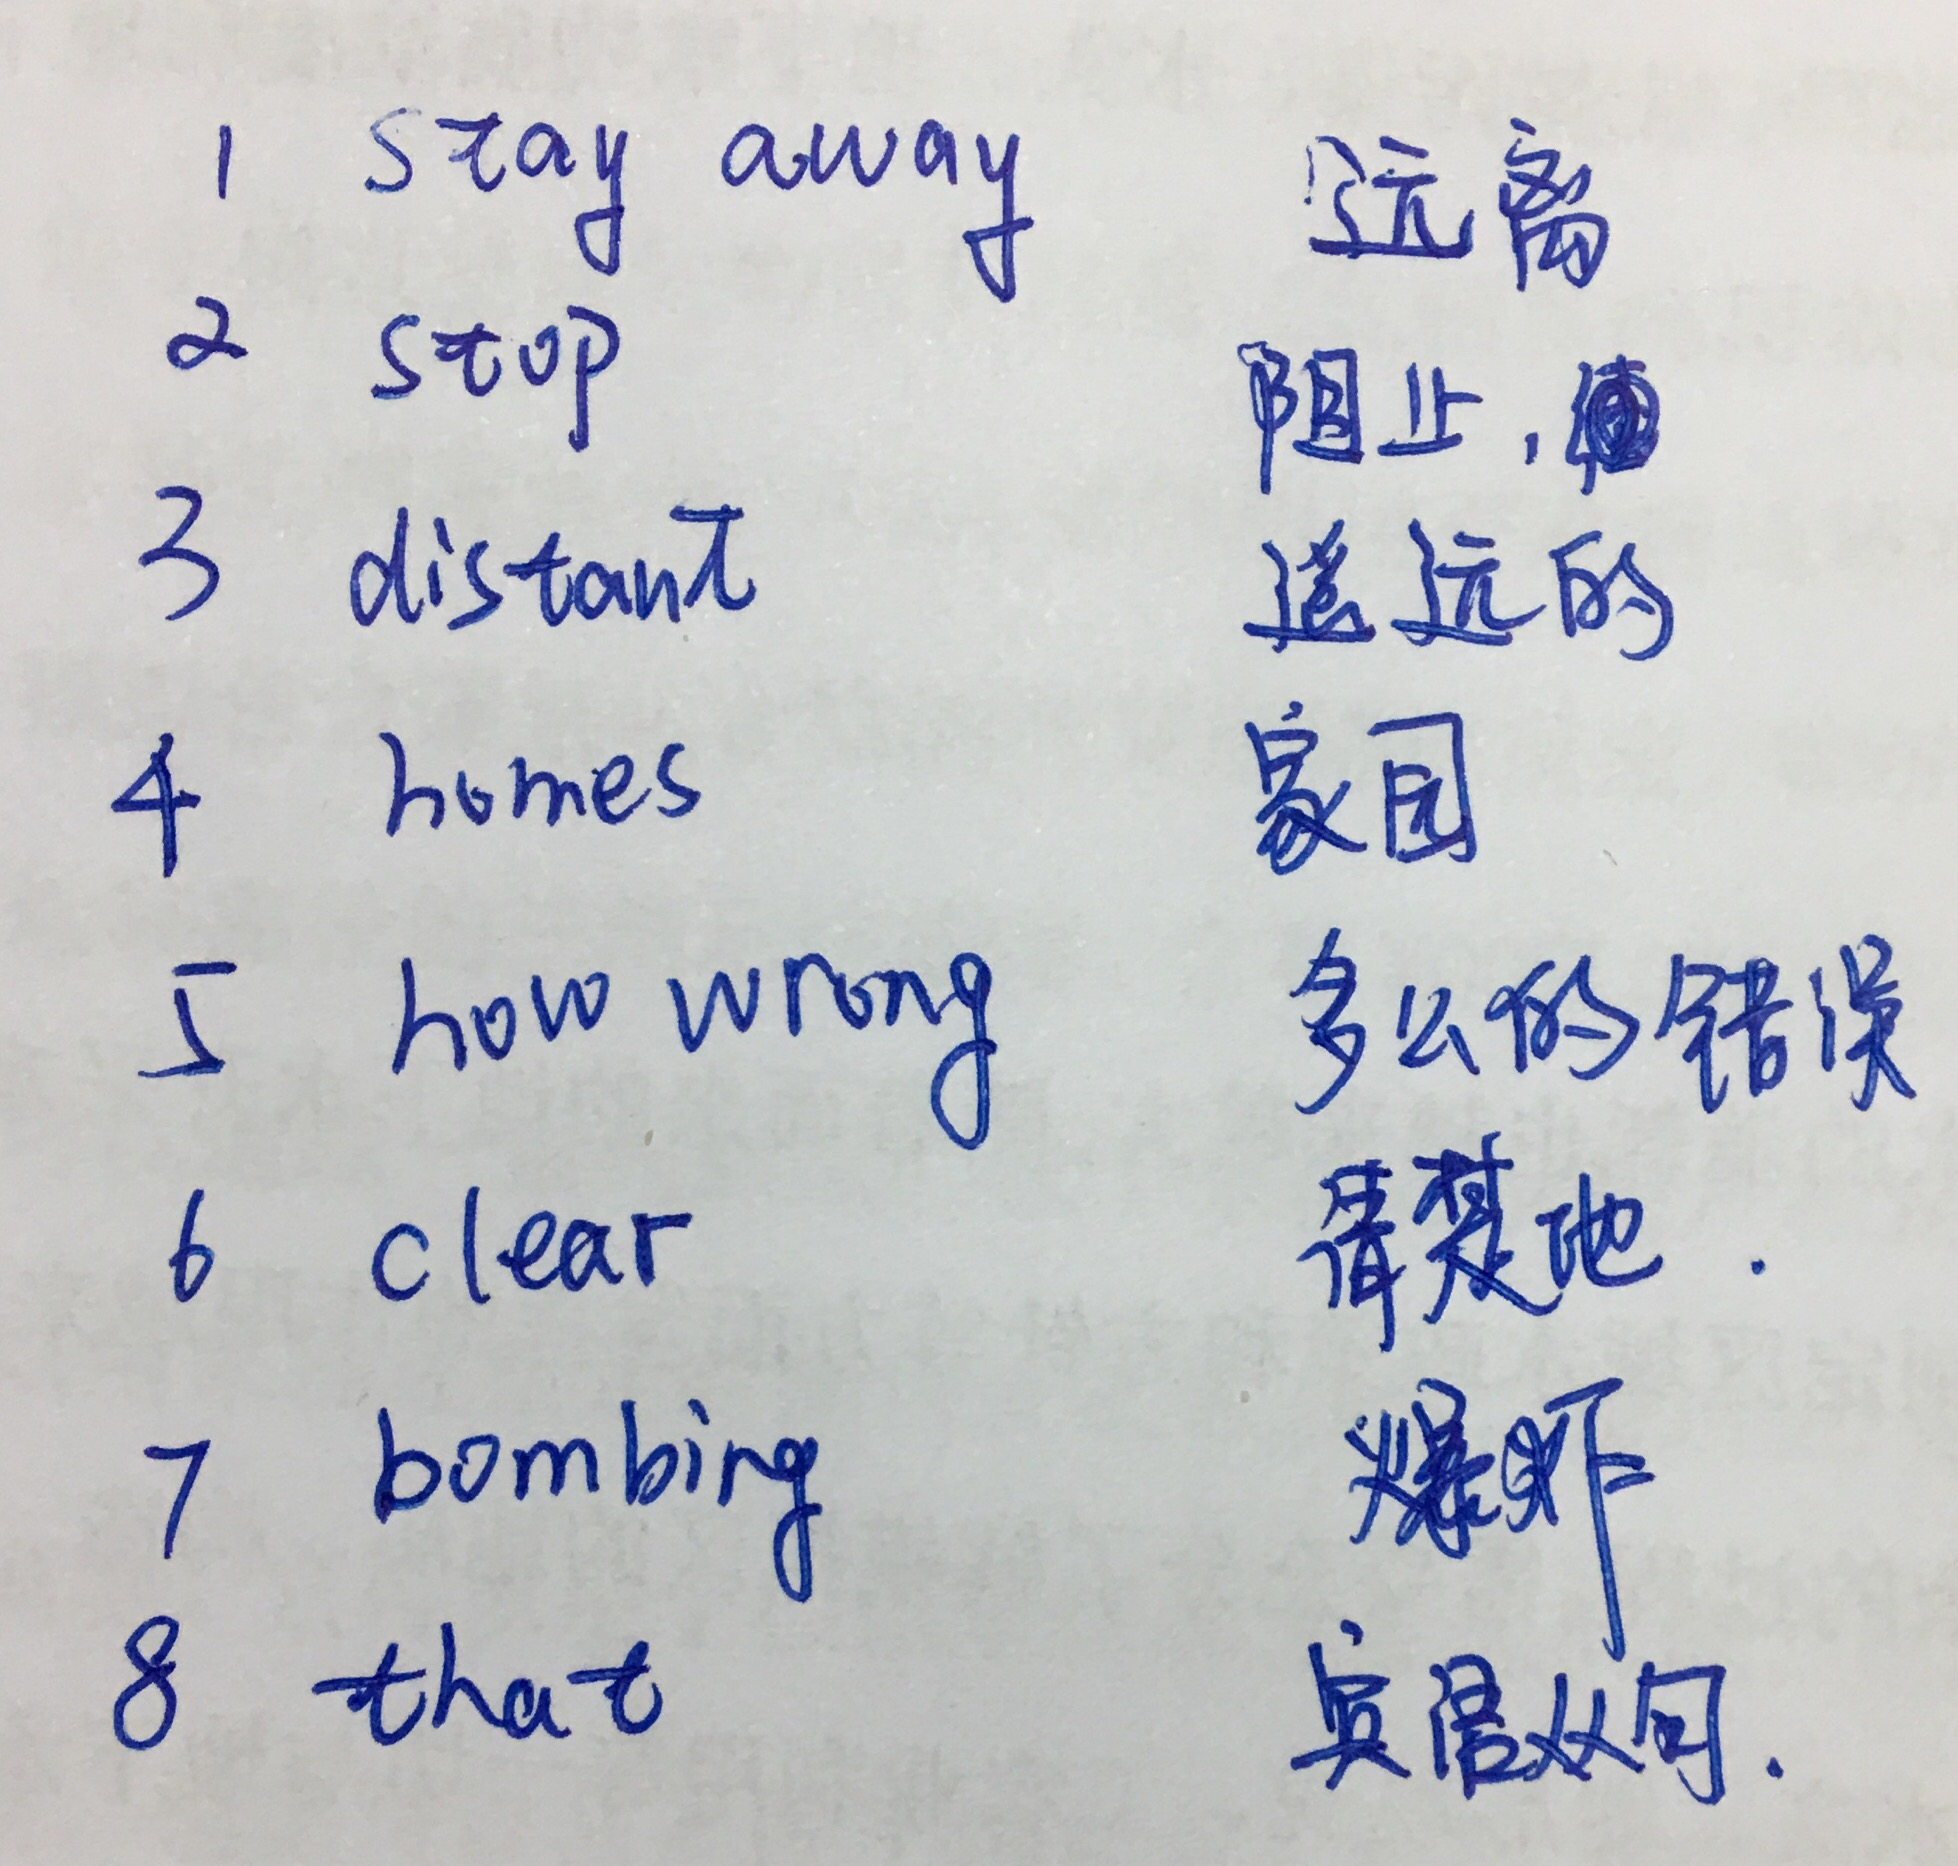 1 stay away 远离
2 stop 阻止，
3 distant 遥远的
4 homes 家园
5 how wrong 多么的错误
6 clear 清楚地.
7 bombing 爆炸
8 that 宾语从句.